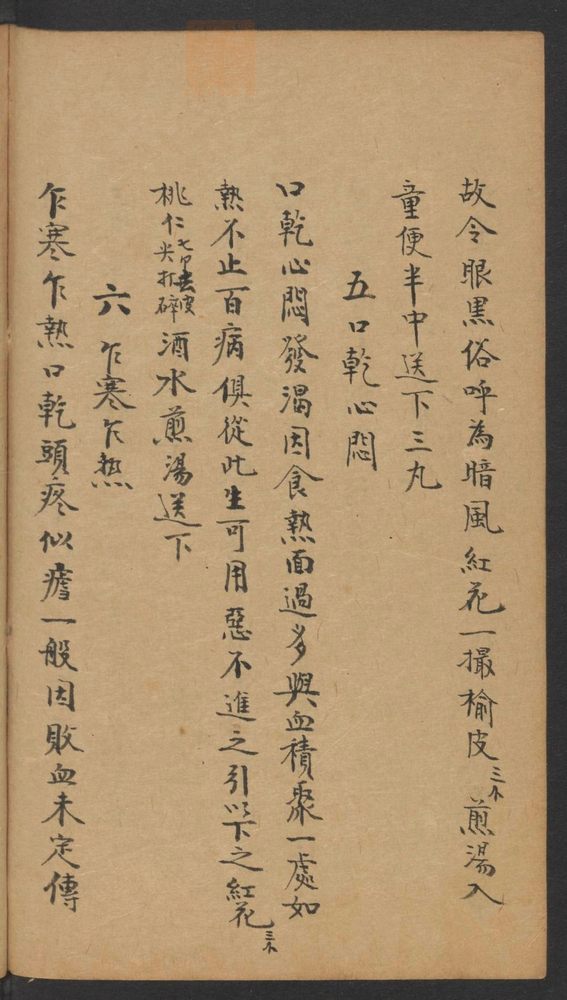 故令眼黒俗呼為暗風紅花一撮榆皮三个煎湯入
童便半中送下三丸
五口乾心悶
口乾心悶發渴因食熱面過多與血積聚一處如
熱不止百病俱從此生可用惡不進之引以下之紅花三个
桃仁七个去皮尖打碎酒水煎湯送下
六乍寒乍熱
乍寒乍熱口乾頭疼似瘧一般因敗血未定傳